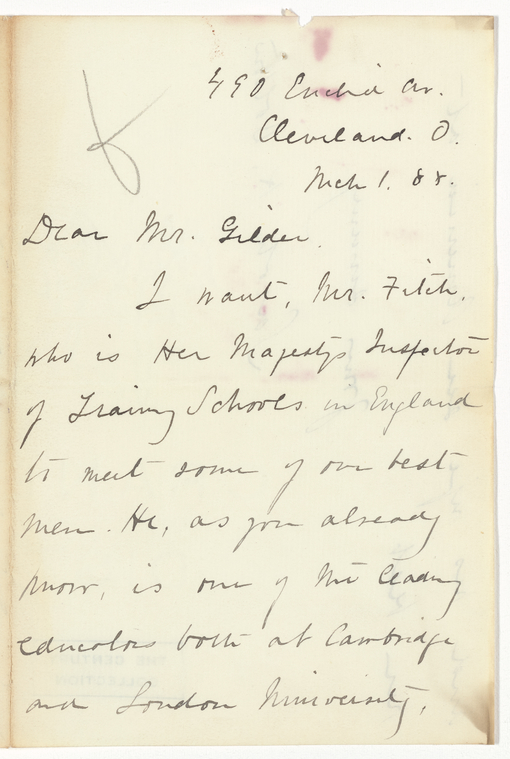 490 Euclid Av.
Cleveland. O.
Mch 1. 88.
Dear Mr. Gilder.
I want, Mr. Fitch,
who is Her Majestys Inspector
of Training Schools in England
to meet some of our best
men. He, as you already
know, is one of the leading
educators both at Cambridge
and London University,